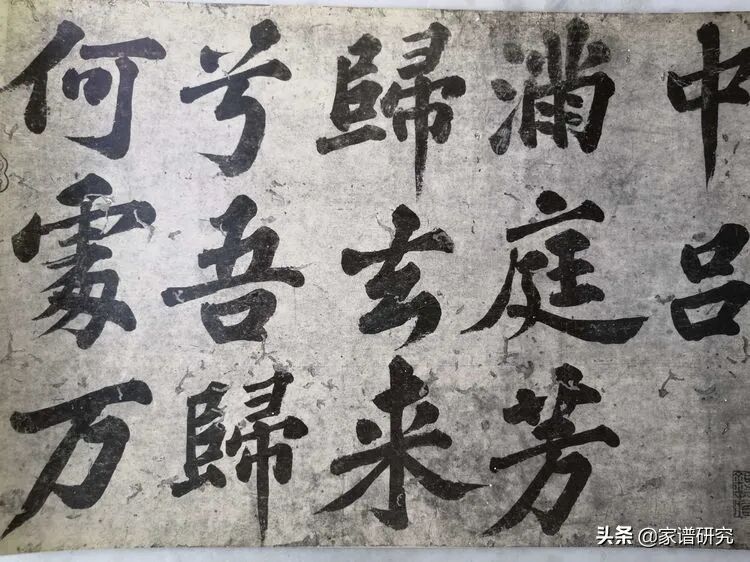 中呂
滿庭芳
歸去来
兮吾歸
何處万
头条 @家谱研究